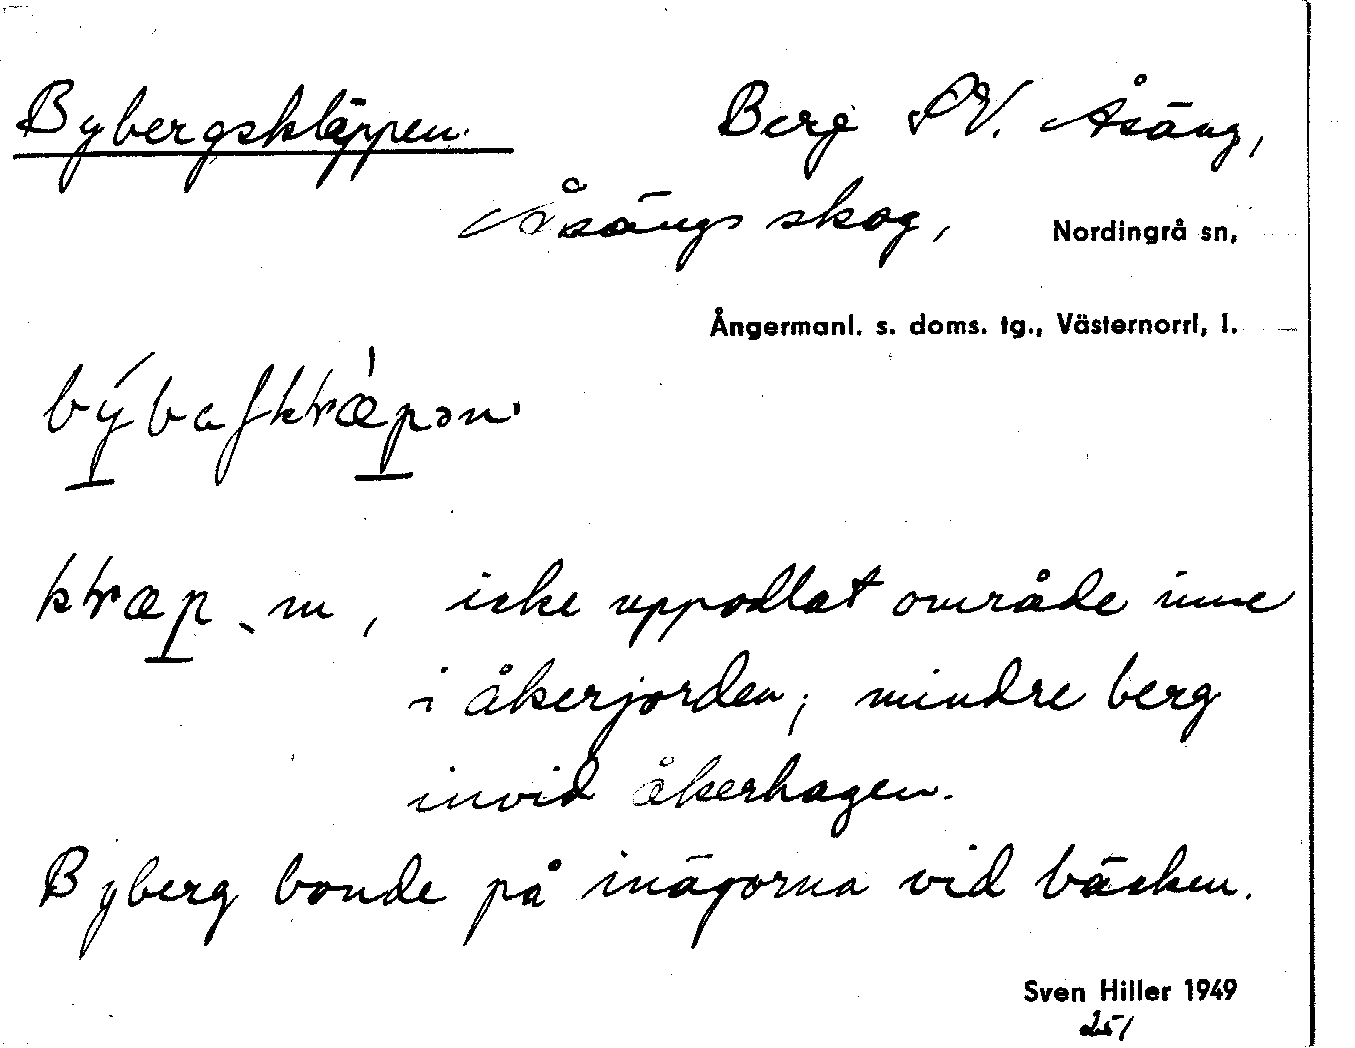 Bybergskläppen. Berg SV. Åsäng,
Åsängs skog, Nordingrå sn,
Ångermanl. s. doms. tg., Västernorrl, l.
icke uppodlat område inne
i åkerjorden; mindre berg
invid åkerhagen.
Byberg bonde på inägorna vid bäcken.
Sven Hiller 1949
251